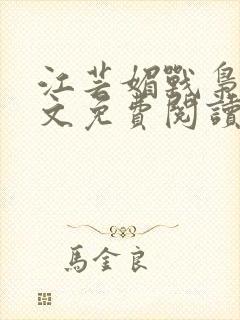 江芸媚戰梟
文免費閱讀
馬金良